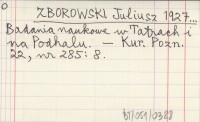 ZBOROWSKI Juliusz 1927...
Badania naukowe w Tatrach i
na Podhalu. — Kur. Pozn.
22, nr 285: 8.
bt/051/0388